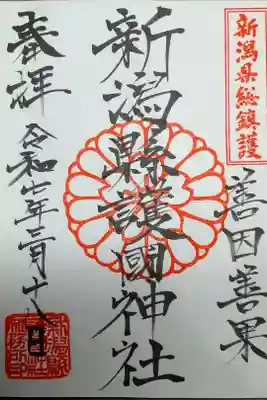 新潟県総鎮護
善因善果
新潟縣護國神社
奉拝
令和七年三月十八日